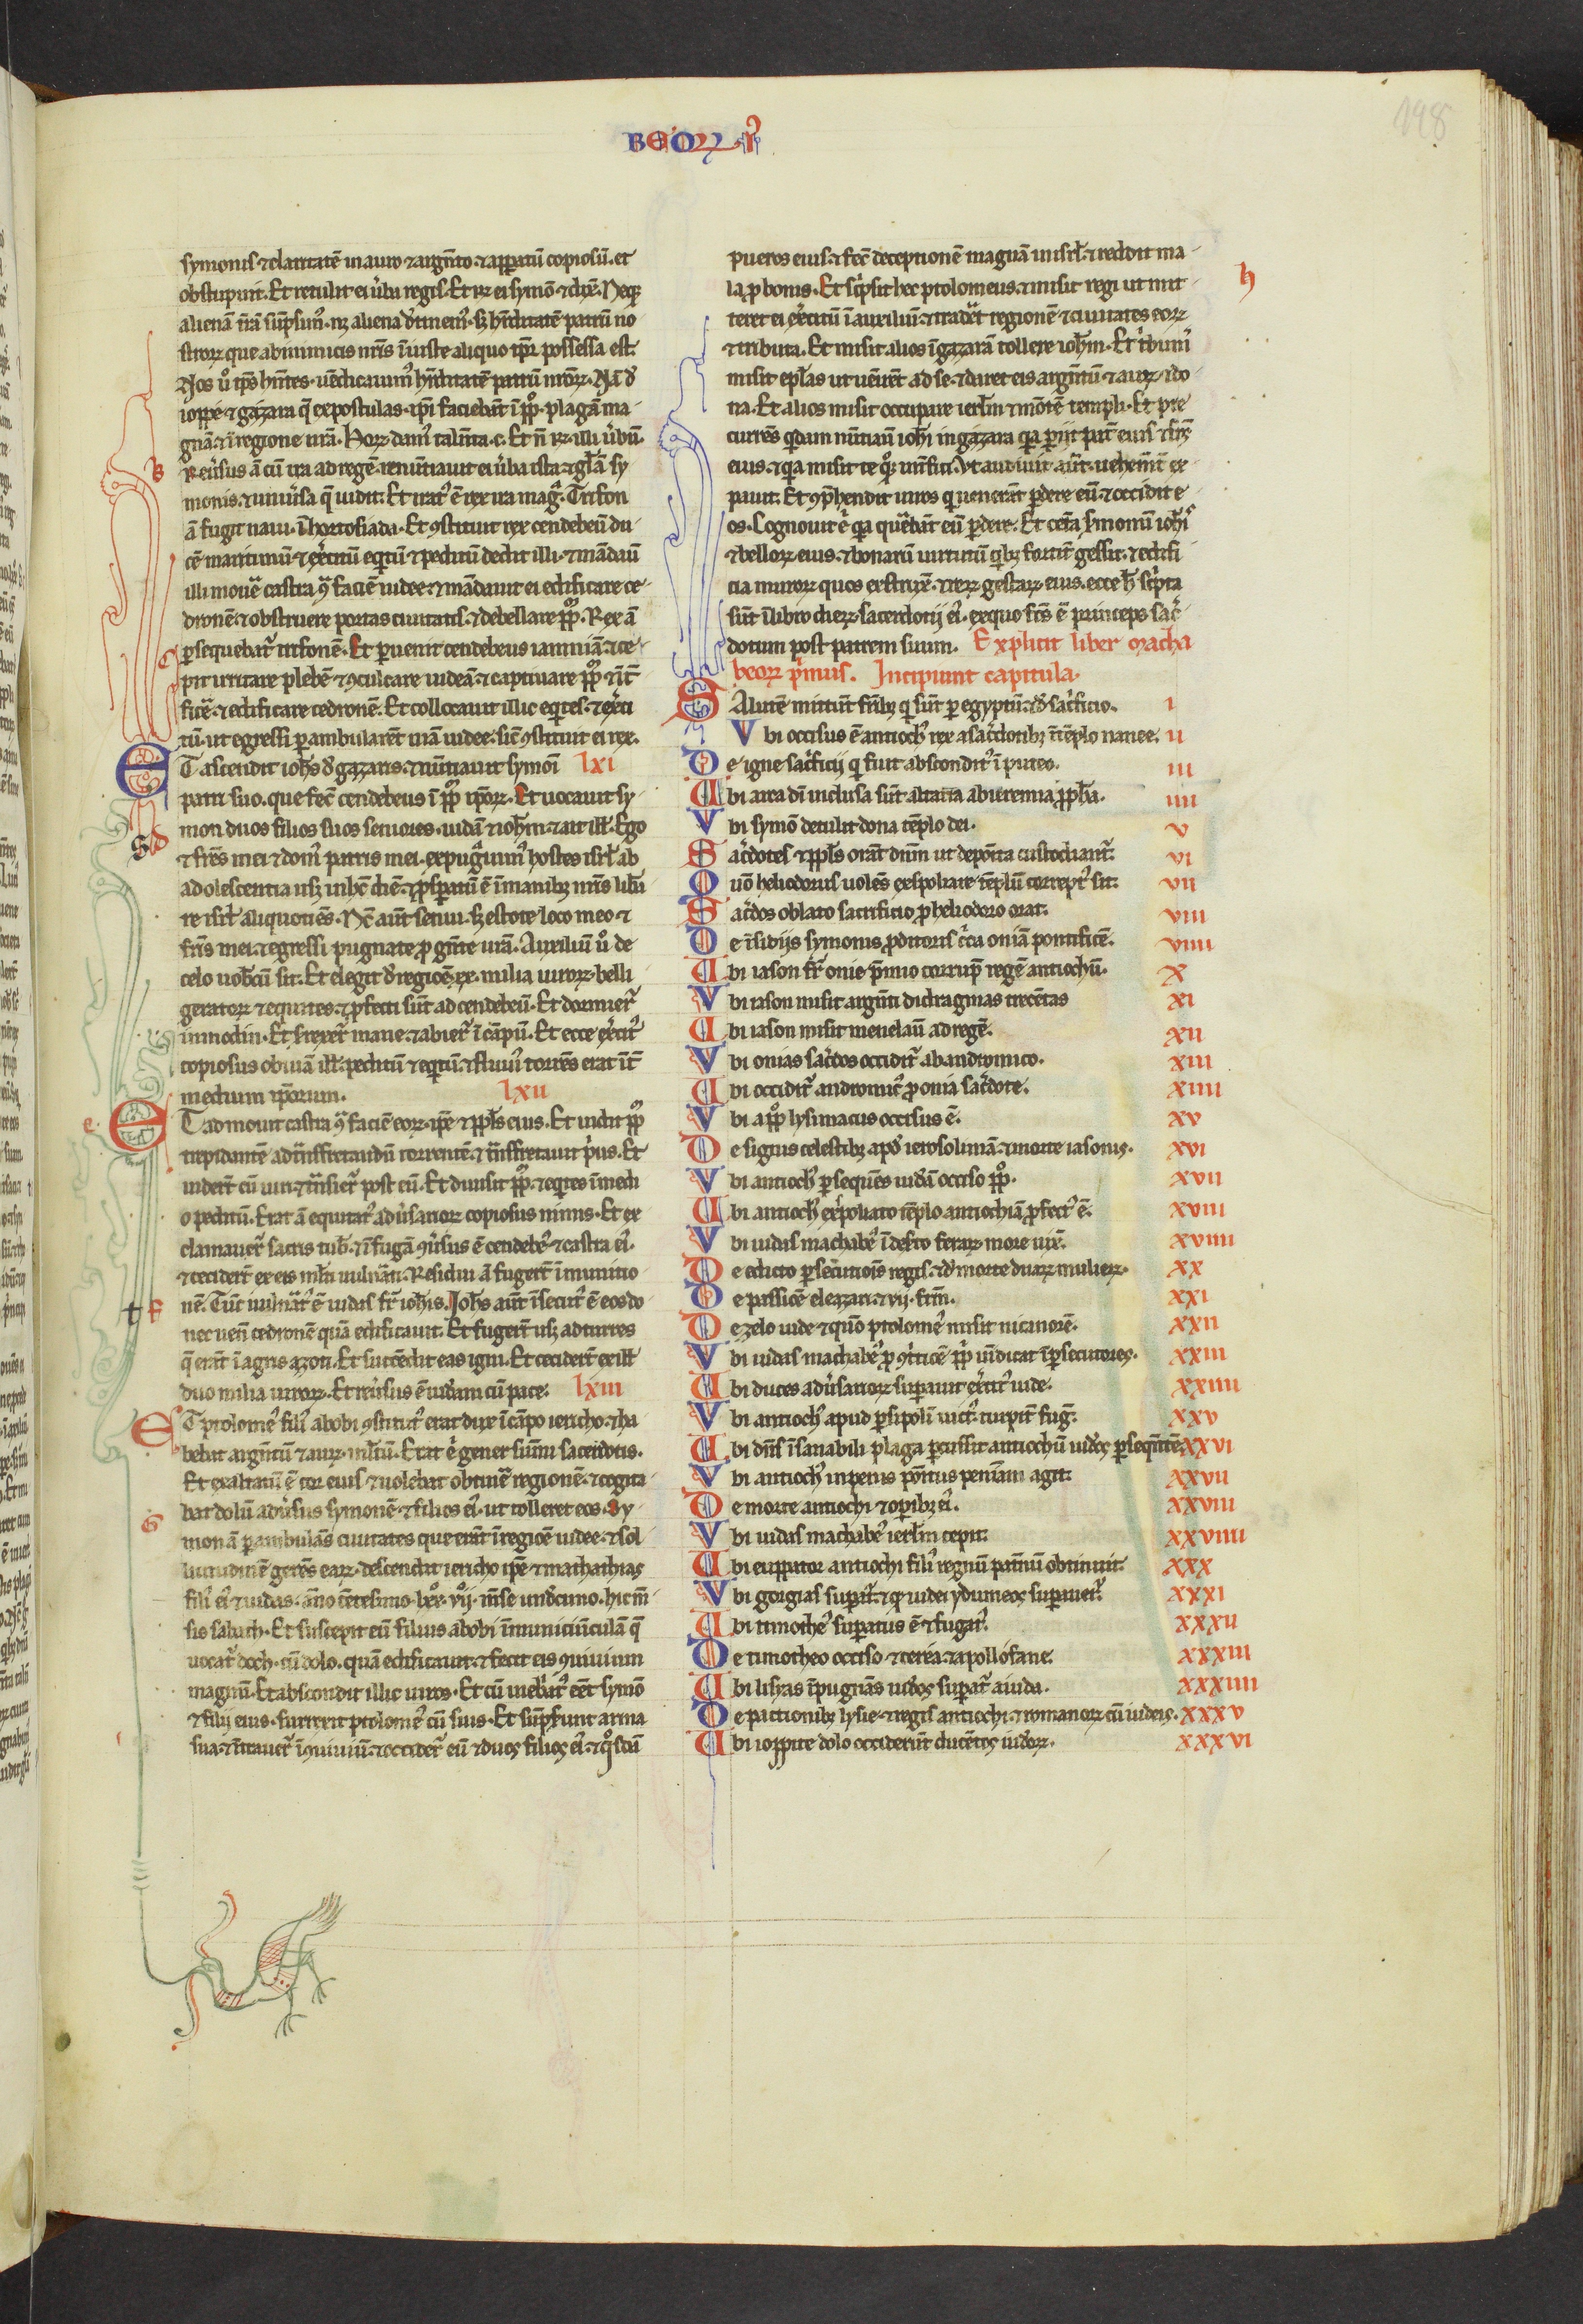 BEOꝜ · I
198
symonis ⁊ claritatē in auro ⁊ argn̄to ⁊ apparatū copiosū. et
obstupuit. Et retulit ei ūba regis. Et ꝶ ei symō ⁊ dix̄. Neq;
alienā t̄rā sūpsimꝰ. nꝫ aliena detinemꝰ. sꝫ h̄editatē patrū no
stroꝝ que ab inimicis nr̄is iniuste aliquo tp̄r possessa est.
Nos ū tp̄s hn̄tes. uēdicauimꝰ h̄editatē patrū nr̄oꝝ. Nā de
ioppe ⁊ gazara q̄ expostulas. ip̄i faciebāt ī pp̄lo plagā ma
gnā. ⁊ ī regione nr̄a. Hoꝝ damꝰ talēta .c. Et n̄ ꝶ illi ūbū.
Reūsus ā cū ira ad regē. renūtiauit ei ūba ista. ⁊ gl̄am sy
monis. ⁊ uniūsa q̄ uidit. Et iratꝰ ē rex ira mag̃. Trifon
ā fugit naui. ī hortosiada. Et ꝯstituit rex cendebeū du
cē maritimū ⁊ exc̄itū eqtū ⁊ peditū dedit illi. ⁊ mādauit
illi mouē castra ꝯ faciē iudee. ⁊ mādauit ei edificare ce
dronē. ⁊ obstruere portas ciuitatis. ⁊ debellare pp̄lm. Rex ā
ꝑsequebat̃ trifonē. Et ꝑuenit cendebeus iamniā. ⁊ ce
pit irritare plebē ⁊ ꝯculcare iudeā. ⁊ captiuare pp̄lm ⁊ int̄
ficē. ⁊ edificare cedronē. Et collocauit illic eqites. ⁊ exc̄i
tū. ut egressi ꝑambularēt uiā iudee. sic̄ ꝯstituit ei rex.
ET ascendit ioh̄s de gazaris. ⁊ nūtiauit symoī lxi
patri suo. que fec̄ cendebeus ī pp̄lo ip̄oꝝ. Et uocauit sy
mon duos filios suos seniores. iudā ⁊ ioh̄m. ⁊ ait ill̄. Ego
⁊ fr̄es mei ⁊ domꝰ patris mei. expug̃uimꝰ hostes isr̄l ab
adolescentia usꝫ in hūc diē. ⁊ ꝓspatū ē ī manibꝫ nr̄is libe
re isr̄l aliquotiēs. Nc̄ aūt senui. sꝫ estote loco meo ⁊
fr̄is mei. ⁊ egressi pugnate ꝓ gēte nr̄a. Auxiliū ū de
celo uob̄cū sit. Et elegit de regiōe .xx. milia uiroꝝ belli
geratoꝝ ⁊ equites. ⁊ ꝓfecti sūt ad cendebeū. Et dormier̄
in modin. Et srexer̄t mane. ⁊ abier̄t ī cāpū. Et ecce exc̄itꝰ
copiosus obuiā ill̄. peditū ⁊ eqtū. ⁊ fluuiꝰ torrēs erat int̄
medium ip̄orum. lxii
ET admouit castra ꝯ faciē eoꝝ. ip̄e ⁊ pp̄ls eius. Et uidit pp̄lm
trepidantē ad trāsfretandū torrentē. ⁊ trāsfretauit p̄us. Et
uider̄t eū uiri. ⁊ trāsier̄t post eū. Et diuisit pp̄lm. ⁊ eqites ī medi
o peditū. Erat ā equitatꝰ adūsarioꝝ copiosus nimis. Et ex
clamauer̄t sacris tub̄. ⁊ ī fugā ꝯūsus ē cendebeꝰ ⁊ castra eiꝰ.
⁊ cecider̄t ex eis ml̄ti uulnāti. Residui ā fuger̄t ī munitio
nē. Tūc uulnatꝰ ē iudas fr̄ ioh̄is. Ioh̄s aūt īsecutꝰ ē eos do
nec ueīr cedronē quā edificauit. Et fuger̄t usꝫ ad turres
q̄ erāt ī agris azoti. Et succēdit eas igni. Et cecider̄t ex ill̄
duo milia uiroꝝ. Et reūsus ē iudeam cū pace. lxiii
ET ptolomeꝰ filiꝰ abobi ꝯstitutꝰ erat dux ī cāpo iericho. ⁊ ha
bebat argn̄tū ⁊ auꝝ multū. Erat .ē gener summi sacerdotis.
Et exaltatū ē cor eius ⁊ uolebat obtinē regionē. ⁊ cogita
bat dolū adūsus symonē ⁊ filios eiꝰ. ut tolleret eos. Sy
mon ā ꝑambulās ciuitates que erāt ī regiōe iudee. ⁊ sol
licitudinē gerēs eaꝝ. descendit iericho ip̄e ⁊ mathathias
filiꝰ eiꝰ ⁊ iudas. āno cētesimo .lxx. vii. mēse undecimo. hic mē
sis sabath. Et suscepit eū filius abobi ī munitiūculā q̄
uocat̃ doch. cū dolo. quā edificauit. ⁊ fecit eis ꝯuiuium
magnū. Et abscondit illic uiros. Et cū inebriatꝰ eēt symō
⁊ filij eius. surrexit ptolomeꝰ cū suis. Et sūpserunt arma
sua. ⁊ ītrauer̄t ī ꝯuiuiū. ⁊ occider̄t eū ⁊ duos filios eiꝰ. ⁊ q̊sdā
pueros eius. ⁊ fec̄ deceptionē magnā in isr̄l. ⁊ reddit ma
la ꝓ bonis. Et sc̄psit hec ptolomeus. ⁊ misit regi ut mit
teret ei exc̄itū ī auxiliū. ⁊ tradet regionē ⁊ ciuitates eoꝝ
⁊ tributa. Et misit alios ī gazarā tollere ioh̄m. Et t̄bunꝰ
misit ep̄las ut uēirēt ad se. ⁊ daret eis argn̄tū ⁊ auꝝ. ⁊ do
na. Et alios misit occupare ierl̄m ⁊ mōtē templi. Et pre
currēs qdam nūtiauit ioh̄i in gazara qa ꝑiit pat̄ eius ⁊ fr̄es
eius. ⁊ qa misit te qoqꝫ int̄fici. Vt audiuit aūt. uehemēt̄ ex
pauit. Et ꝯp̄hendit uiros q uenerāt ꝑdere eū. ⁊ occidit e
os. Cognouit .ē qa querebāt eū ꝑdere. Et cet̄a s̄monū ioh̄is
⁊ belloꝝ eius. ⁊ bonarū uirtutū qibꝫ fortit̄ gessit. ⁊ edifi
cia muroꝝ quos exstruxē. ⁊ reꝝ gestaꝝ eius. ecce h̄ sc̄pta
sūt ī libro dieꝝ sacerdotij eiꝰ. ex quo fc̄s ē princeps sac̄
dotum post patrem suum. Explicit liber macha
beoꝝ p̄mus. Incipiunt capitula.
SAlutē mittūt fr̄ibꝫ q sūt ꝑ egyptū. ⁊ de sac̄ficio. i
Vbi occisus ē antiochꝰ rex a sac̄dotibꝫ ī tēplo nanee. ii
De igne sac̄ficij q fuit abscondit̃ ī puteo. iii
Ubi arca dn̄i inclusa sūt altaria ab ieremia ꝓpha. iiii
Vbi symō detulit dona tēplo dei. v
Sac̄dotes ⁊ pp̄ls orāt dn̄m ut deposita custodiant̃. vi
Quō heliodorus uolēs exspoliare tēplū correptꝰ sit. vii
Sac̄dos oblato sacrificio ꝓ heliodoro orat. viii
De īsidijs symonis ꝓditoris c̄ca oniā pontificē. viiii
Ubi iason fr̄ onie p̄mio corrup̄ regē antiochū. x
Vbi iason misit argn̄ti didragmas trecētas xi
Ubi iason misit menelaū ad regē. xii
Vbi onias sac̄dos occidit̃ ab andronico. xiii
Ubi occidit̃ andronicꝰ ꝓ onia sac̄dote. xiiii
Vbi a pp̄lo lysimacus occisus ē. xv
De signis celestibꝫ apud ierosolimā. ⁊ morte iasonis. xvi
Vbi antiochꝰ ꝑsequēs iudā occiso pp̄lo. xvii
Ubi antiochꝰ exspoliato tēplo antiochiā ꝓfectꝰ ē. xviii
Vbi iudas machabeꝰ ī deserto feraꝝ more uiuē. xviiii
De edicto ꝑsecutiōis regis. ⁊ de morte duaꝝ mulieꝝ. xx
De passiōe eleazari. ⁊ vij. fr̄m. xxi
De zelo iude ⁊ quō ptolomeꝰ misit nicanorē. xxii
Vbi iudas machabeꝰ ꝓ ꝯtritiōe pp̄li uīdicat̃ ī ꝑsecutores. xxiii
Ubi duces adūsarioꝝ suꝑauit exc̄itꝰ iude. xxiiii
Vbi antiochꝰ apud ꝑsipolī uictꝰ. turpit̄ fug̃. xxv
Ubi dn̄s īsanabili plaga ꝑcussit antiochū iudeos ꝑsequētē xxvi
Vbi antiochꝰ in penis positus penitētiam agit. xxvii
De morte antiochi ⁊ opibꝫ eiꝰ. xxviii
Vbi iudas machabeꝰ ierl̄m cepit. xxviiii
Ubi euppator antiochi filiꝰ regnū patnū obtinuit. xxx
Vbi gorgias suꝑat̃. ⁊ q iudei ydumeos suꝑauer̄t. xxxi
Ubi timotheꝰ suꝑatus ē ⁊ fugat̃. xxxii
De timotheo occiso ⁊ cerea ⁊ apollofane. xxxiii
Ubi lisias īpugnās iudeos suꝑat̃ a iuda. xxxiiii
De pactionibꝫ lysie ⁊ regis antiochi ⁊ romanoꝝ cū iudeis. xxxv
Ubi ioppite dolo occiderūt ducētos iudeoꝝ. xxxvi